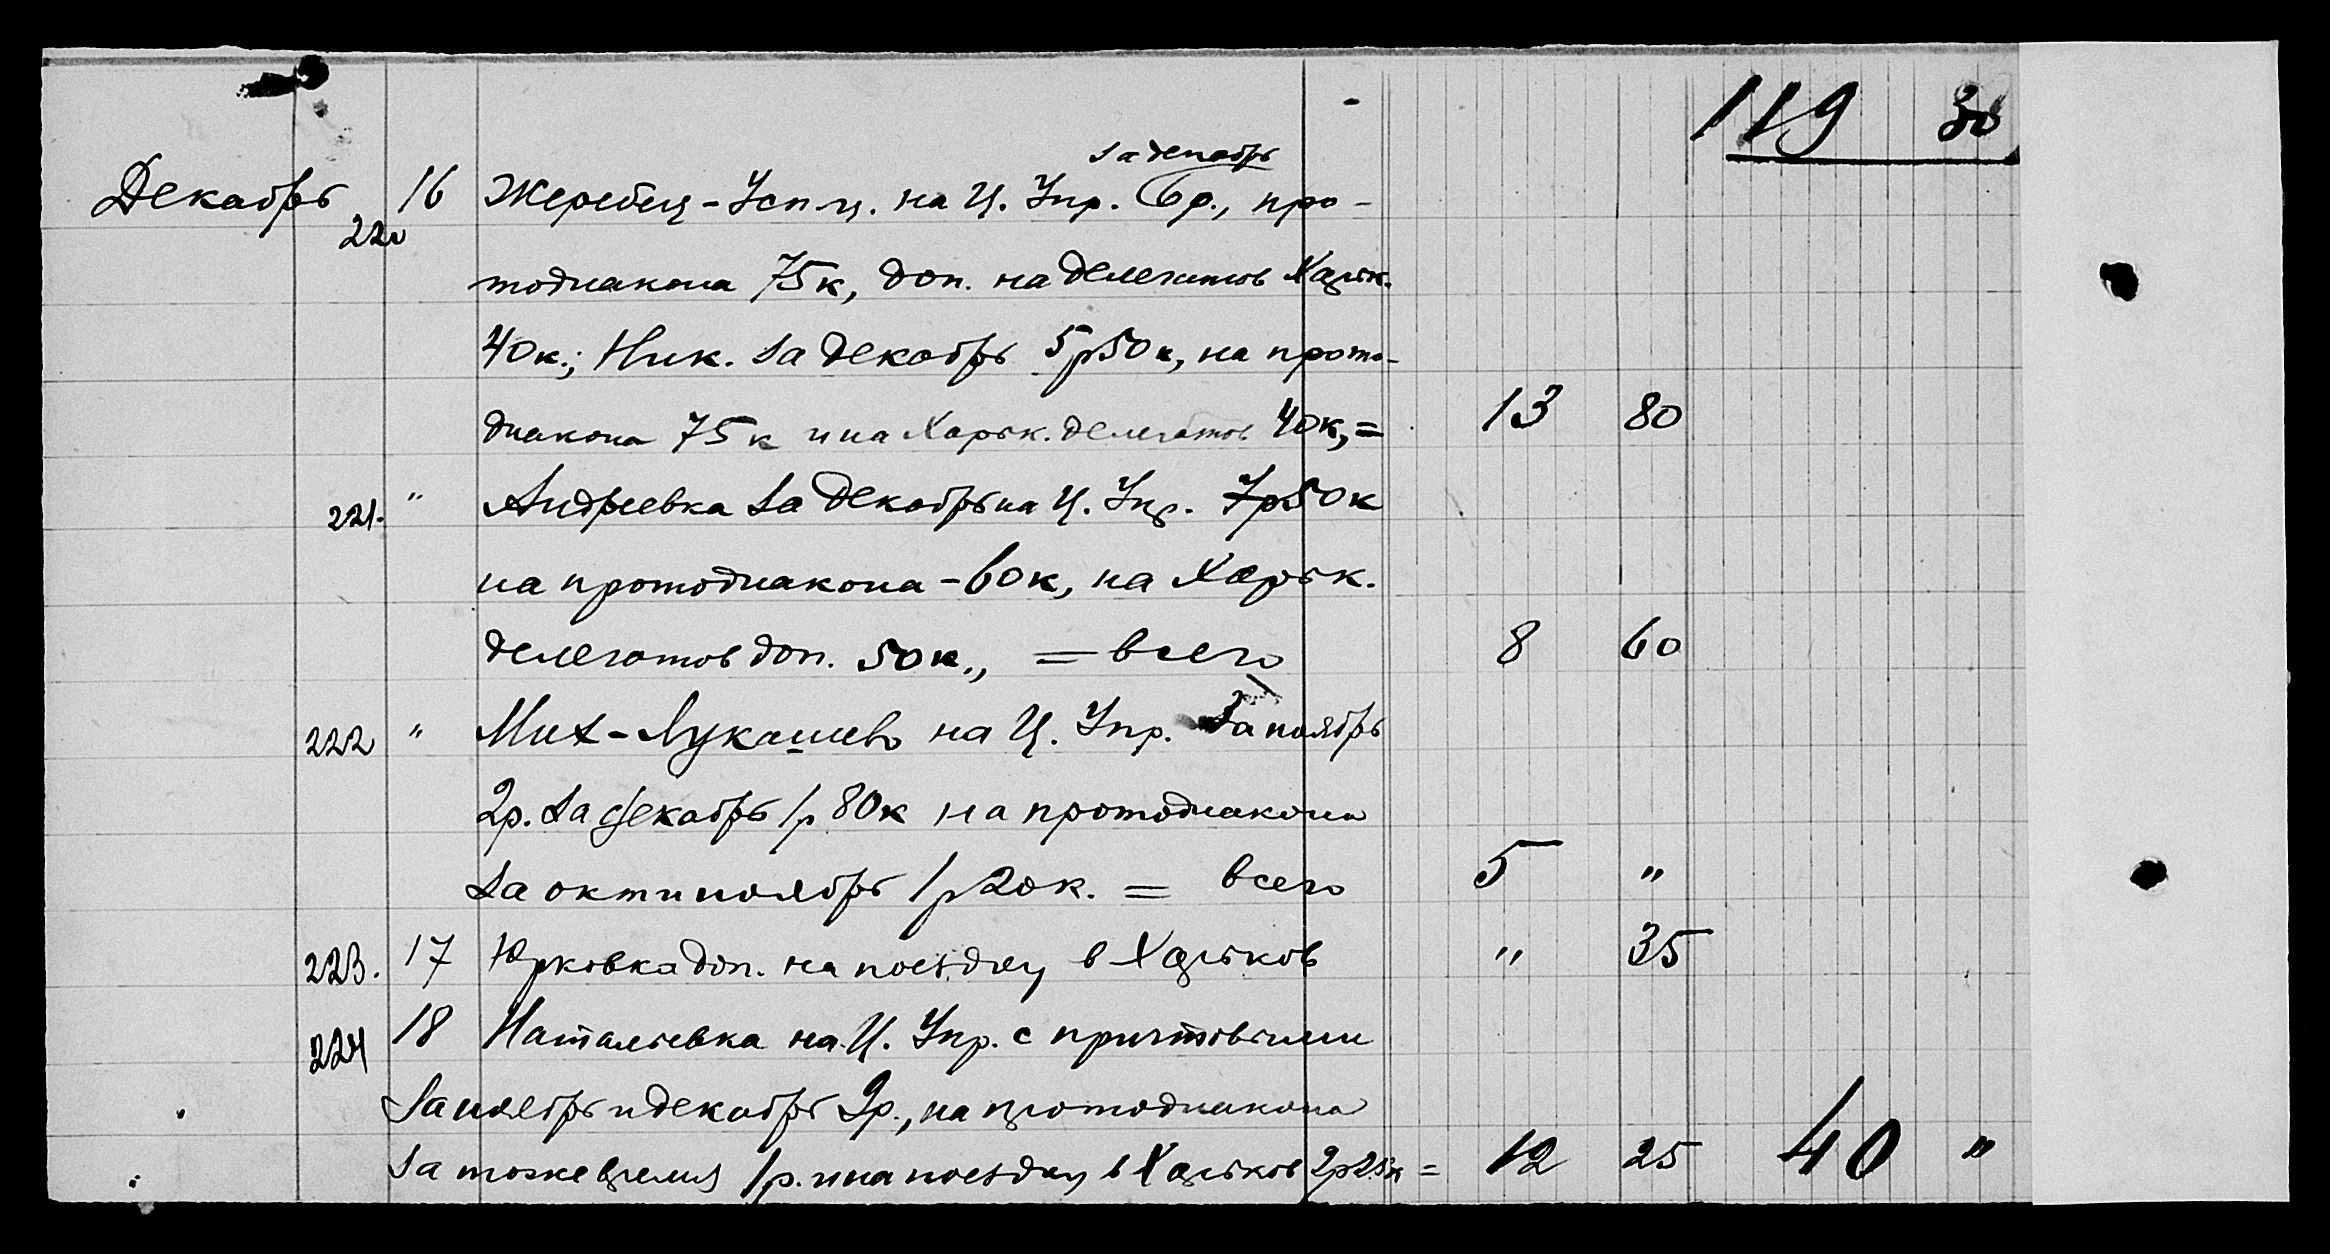 119 30
за декабрь
Декабрь 220 16 Жеребец-Усп. ц. на Ц. Упр. 6р., про-
тодиакона 75к, доп. на делегатов Харьк.
40к.; Ник. за декабрь 5р50к, на прото-
диакона 75к и на Харьк. делегатов 40к, = 13 80
221. " Андреевка за декабрь на Ц. Упр. 7р50к
на протодиакона - 60к, на Харьк.
делегатов доп. 50к., = всего 8 60
222 " Мих-Лукашево на Ц. Упр. За ноябрь
2р. за декабрь 1р 80к на протодиакона
за окт и ноябрь 1р 20к. = всего 5 "
223. 17 Юрковка доп. на поездку в Харьков " 35
224 18 Натальевка на Ц. Упр. с причтовыми
за ноябрь и декабрь 9р., на протодиакона
за то же время 1р. и на поездку в Харьков 2р25к = 12 25 40 "